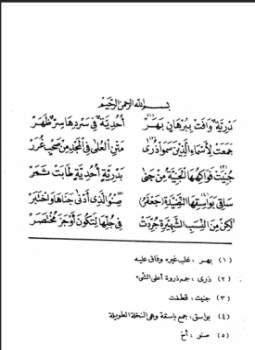 بسم الله الرحمن الرحيم
بدرية وافت ببرهان بهر أحدية في سردها سر ظهر
جمعت لأسماء الذين سموا ذرى متن العلى في المجد من صحب غرر
جنيت فواكهها الجنية من جنى بدرية أحدية طابت ثمر
ساقي بواسقها القصيدة جعفر صنو الذي أدنى جناها واختبر
لكن من النسب الشهيرة جردت في جلها لتكون أوجز مختصر
(١) بهر، غلب غيره وفاق عليه
(٢) ذرى، جمع ذروة أعلى الشيء
(٣) جنيت، قطفت
(٤) بواسق، جمع باسقة وهي النخلة الطويلة
(٥) صنو، أخ